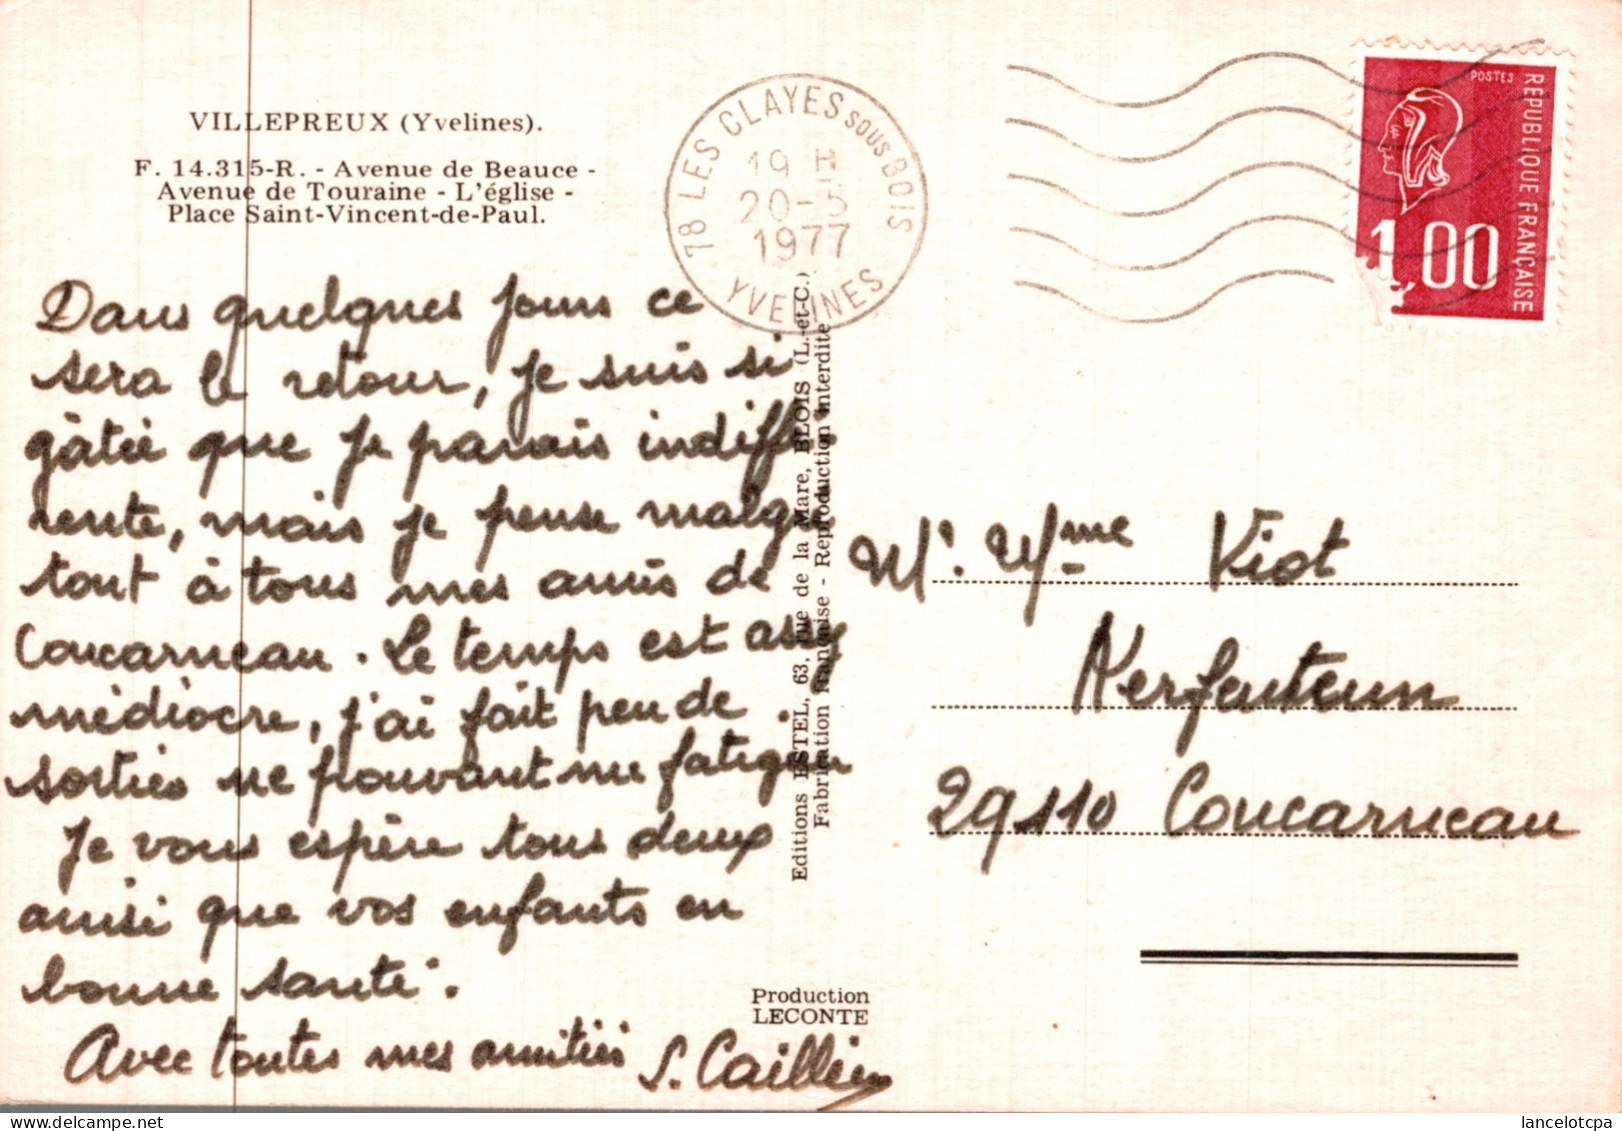 VILLEPREUX (Yvelines).
F. 14.315-R. - Avenue de Beauce -
Avenue de Touraine - L'église -
Place Saint-Vincent-de-Paul.
78 LES CLAYES SOUS BOIS
19 H
20-5
1977
YVELINES
POSTES
REPUBLIQUE FRANÇAISE
1,00
Dans quelques jours ce
sera le retour, je suis si
gâtée que je parais indiffé
rente, mais je pense malgré
tout à tous mes amis de
Concarneau. Le temps est assez
médiocre, j'ai fait peu de
sorties ne pouvant me fatiguer
Je vous espère tous deux
ainsi que vos enfants en
bonne santé.
Avec toutes mes amitiés
Editions ESTEL, 63, rue de la Mare, BLOIS (L.-et-C.)
Fabrication française - Reproduction interdite
Mr. Mme Viot
29110 Concarneau
Production
LECONTE
S.
lancelotcpa
www.delcampe.net